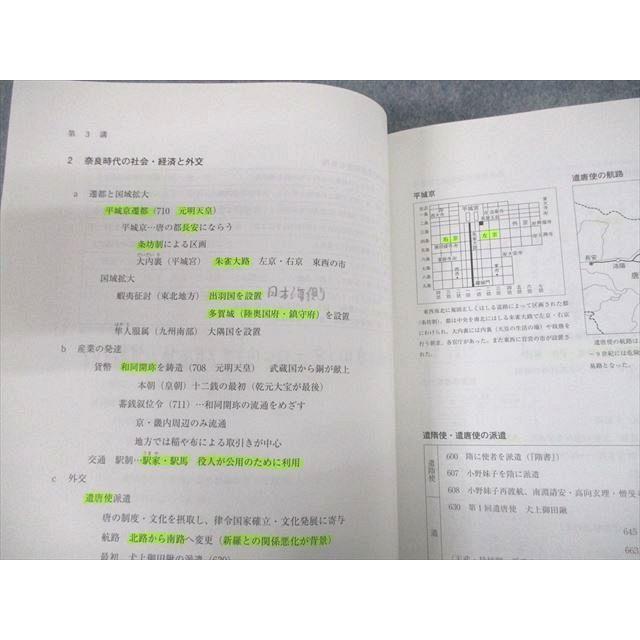 第 3 講
2 奈良時代の社会・経済と外交
a 遷都と国域拡大
平城京遷都(710 元明天皇)
平城京…唐の都長安にならう
条坊制による区画
大内裏(平城宮) 朱雀大路 左京・右京 東西の市
国域拡大
蝦夷征討(東北地方) 出羽国を設置 日本海側
多賀城(陸奥国府・鎮守府)を設置
隼人服属(九州南部) 大隅国を設置
b 産業の発達
貨幣 和同開珎を鋳造(708 元明天皇) 武蔵国から銅が献上
本朝(皇朝)十二銭の最初(乾元大宝が最後)
蓄銭叙位令(711)…和同開珎の流通をめざす
京・畿内周辺のみ流通
地方では稲や布による取引きが中心
交通 駅制…駅家・駅馬 役人が公用のために利用
c 外交
遣唐使派遣
唐の制度・文化を摂取し、律令国家確立・文化発展に寄与
航路 北路から南路へ変更(新羅との関係悪化が背景)
最初 犬上御田鍬の派遣(630)
平城京
平城宮
右京
左京
東西南北に規則正しくはしる道路によって区画された都
(条坊制)。都は中央を南北にはしる朱雀大路で左京・右京
にわけられ、大内裏には内裏(天皇の生活の場)や政務を
行う朝堂、各官庁があった。また東西に官営の市が設置さ
れた。
遣唐使の航路
長安
洛陽
遣唐使の航路は
~9世紀には危険
易路となった。
遣隋使・遣唐使の派遣
遣隋使
600 隋に使者を派遣(『隋書』)
607 小野妹子を隋に派遣
608 小野妹子再渡航、南淵請安・高向玄理・僧旻
630 第1回遣唐使 犬上御田鍬
遣
645
663